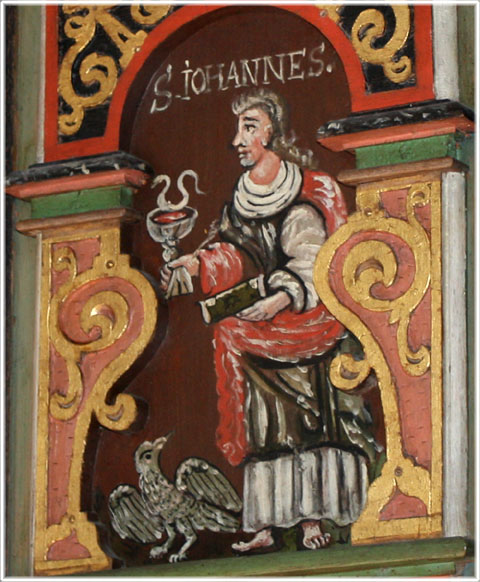 S. IOHANNES.